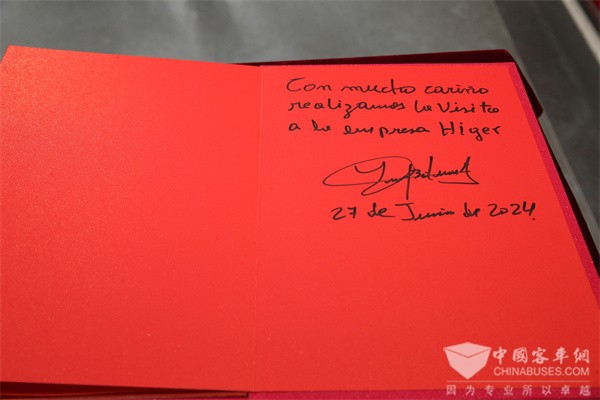 Con mucho cariño
realizamos la visita
a la empresa Higer
27 de Junio de 2024.
中國客車網
CHINABUSES.COM
因为专业所以卓越